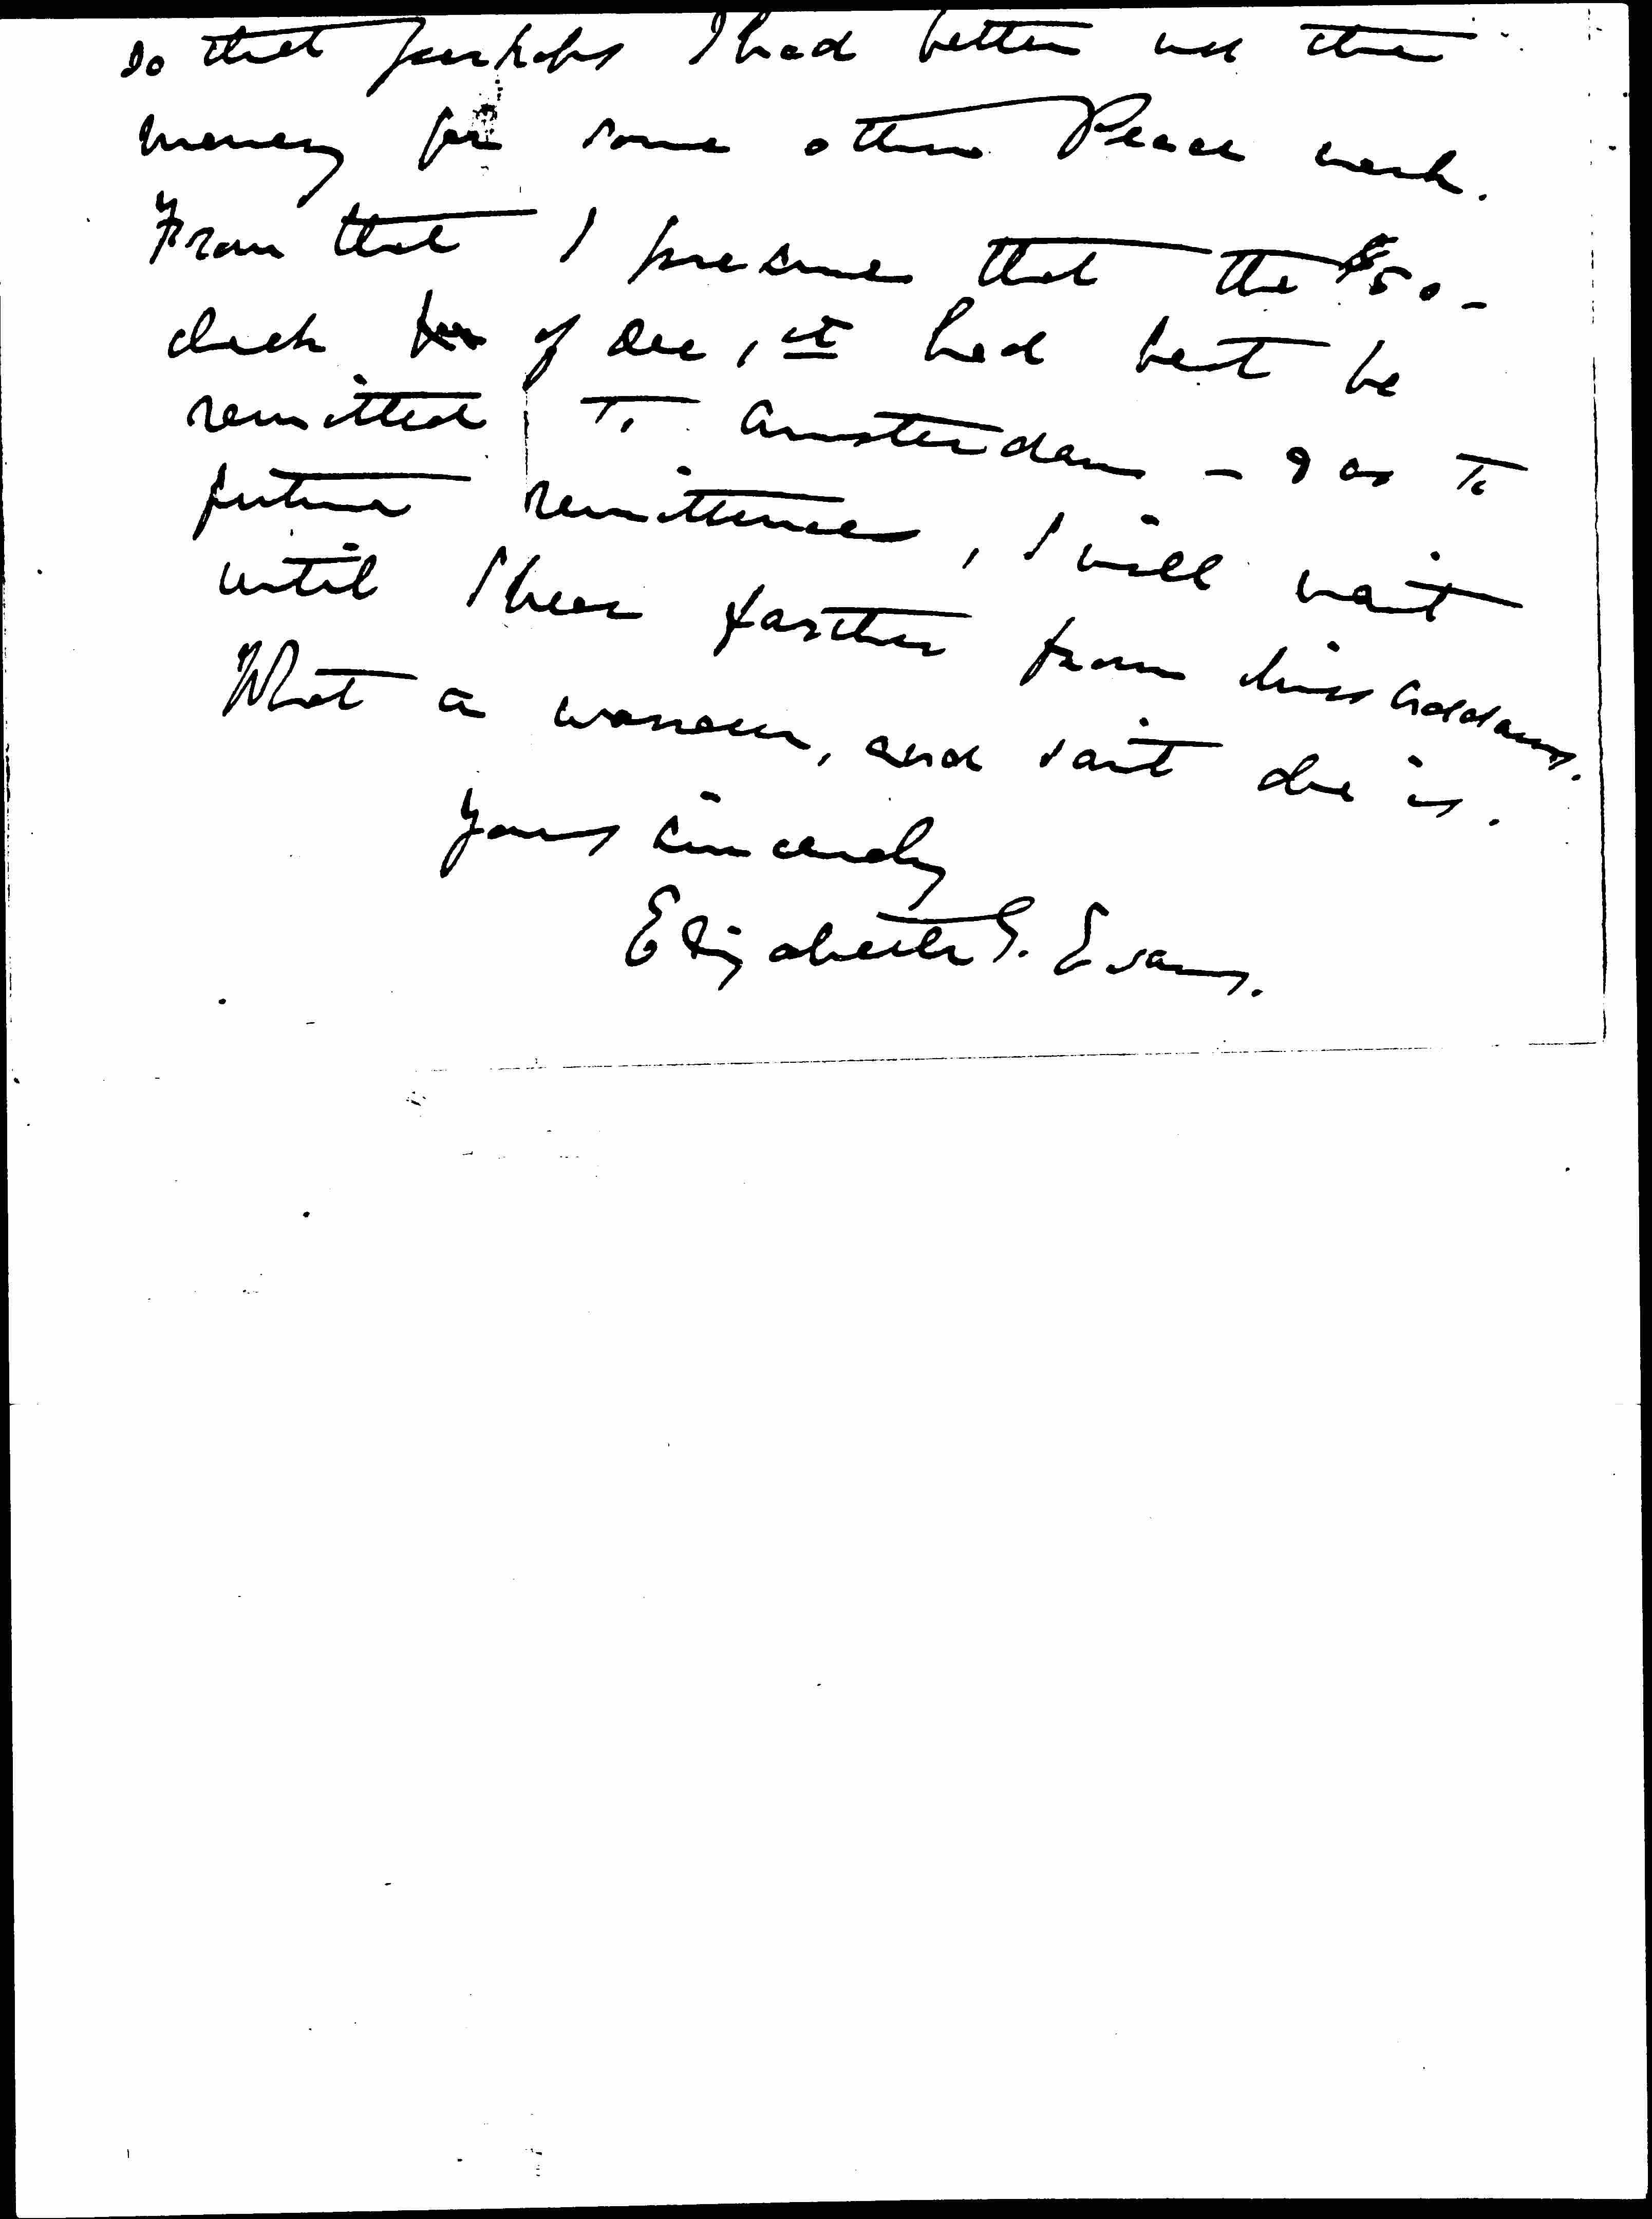 so that perhaps I had better use the
money for some other Peace work.
From that I presume that the $50-
check for of Dec, it had best be
remitted to Amsterdam - & as to
future remittances, I will wait
until I hear farther from Miss Addams.
What a woman, and saint she is.
Yours sincerely
Elizabeth G. Evans.